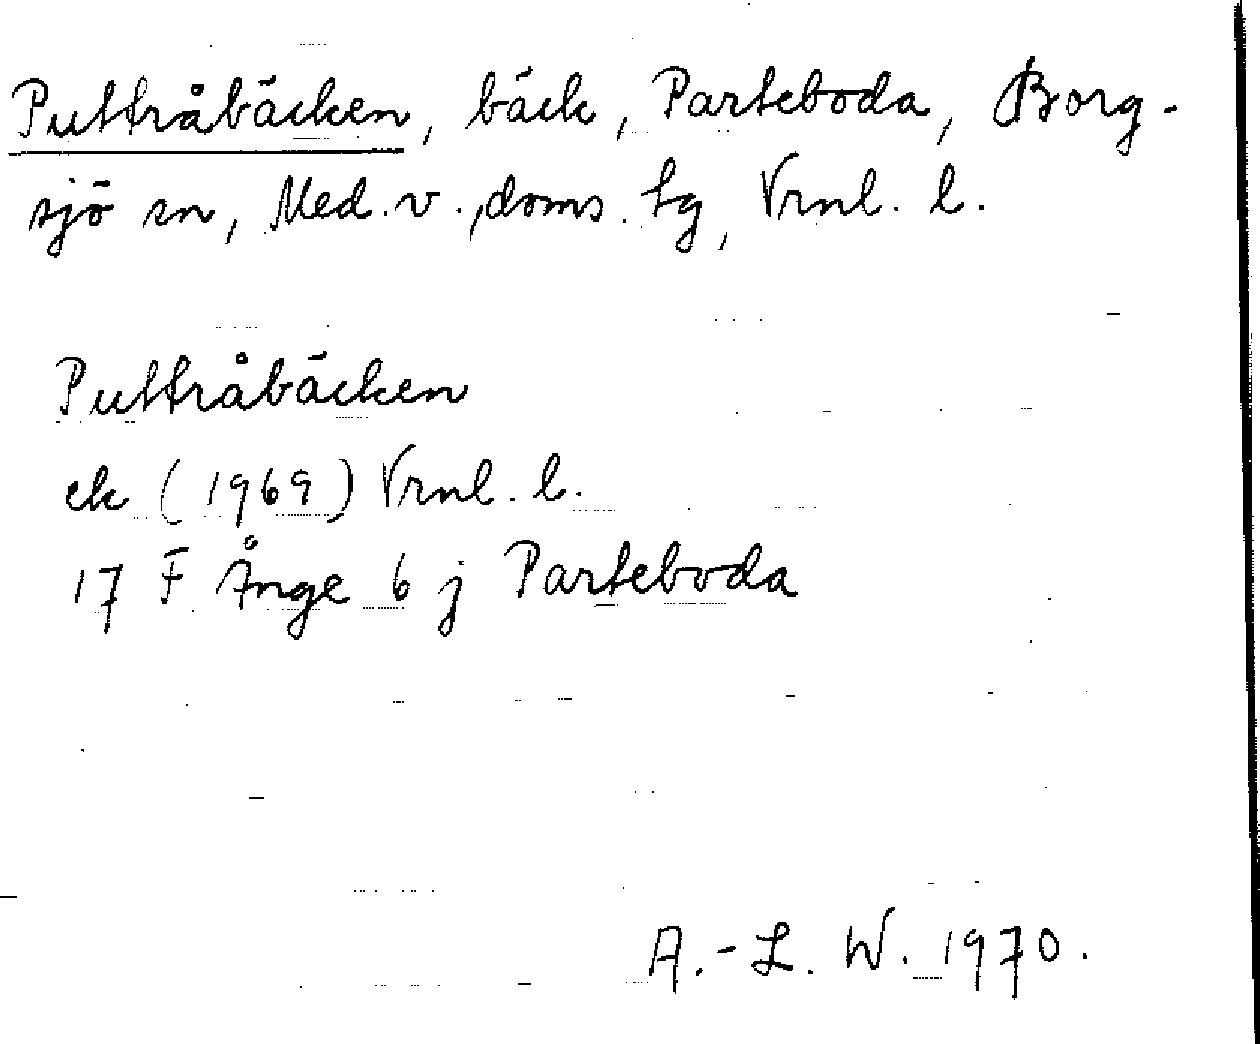 Puttråbäcken, bäck, Parteboda, Borg-
sjö sn, Med. v., doms. tg, Vrnl. l.
Puttråbäcken
ek (1969) Vrnl. l.
17 F Ånge 6 j Parteboda
A.-L. W. 1970.